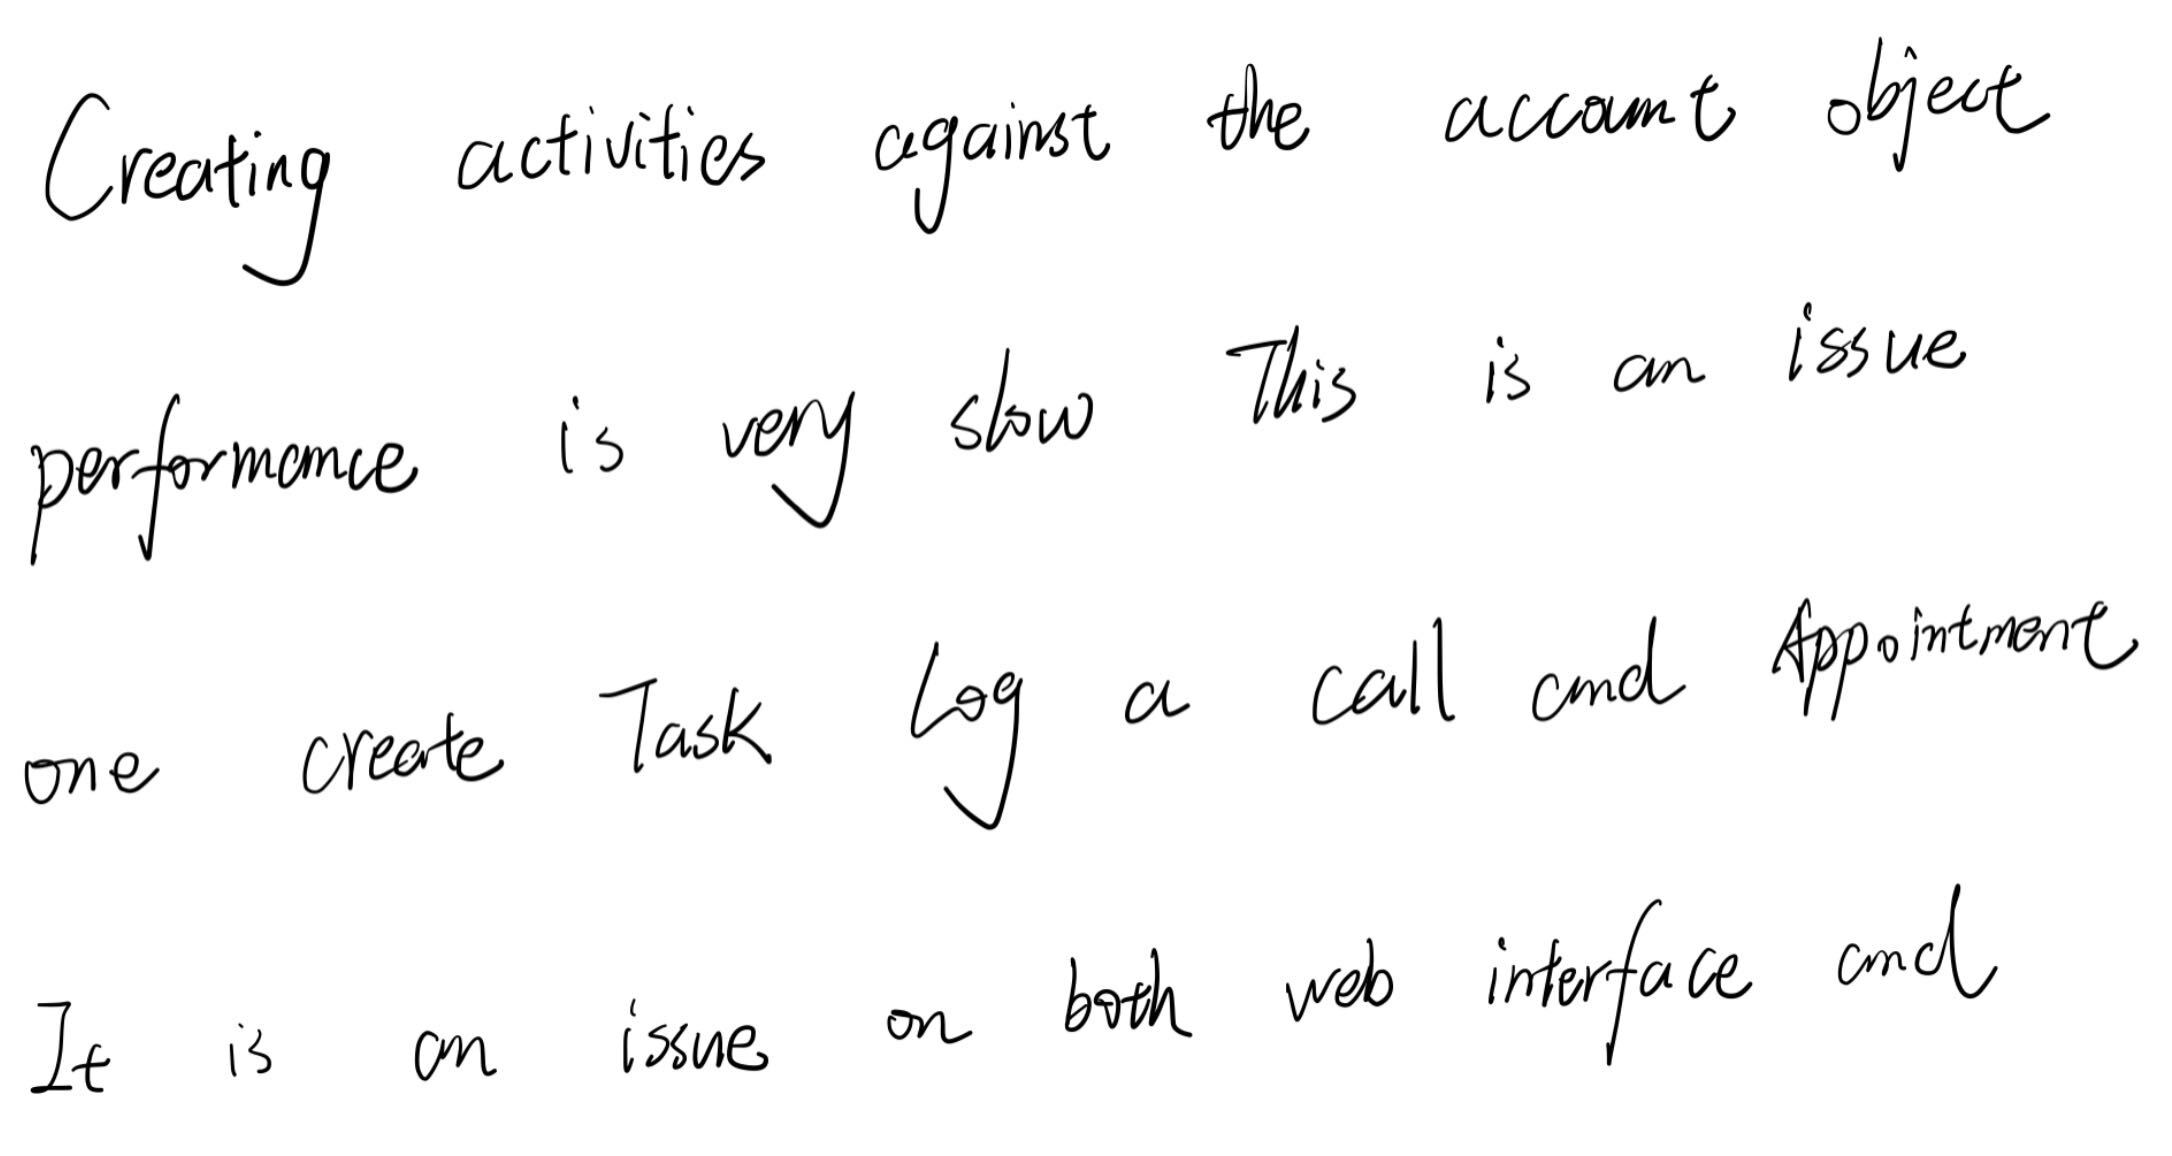 Creating activities against the account object
performance is very slow This is an issue
one create Task Log a call and Appointment
It is an issue on both web interface and